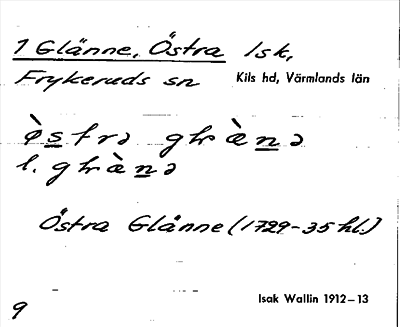 1 Glänne, Östra lsk,
Frykeruds sn Kils hd, Värmlands län
l.
Östra Glänne (1729-35 hl.)
Isak Wallin 1912–13
9